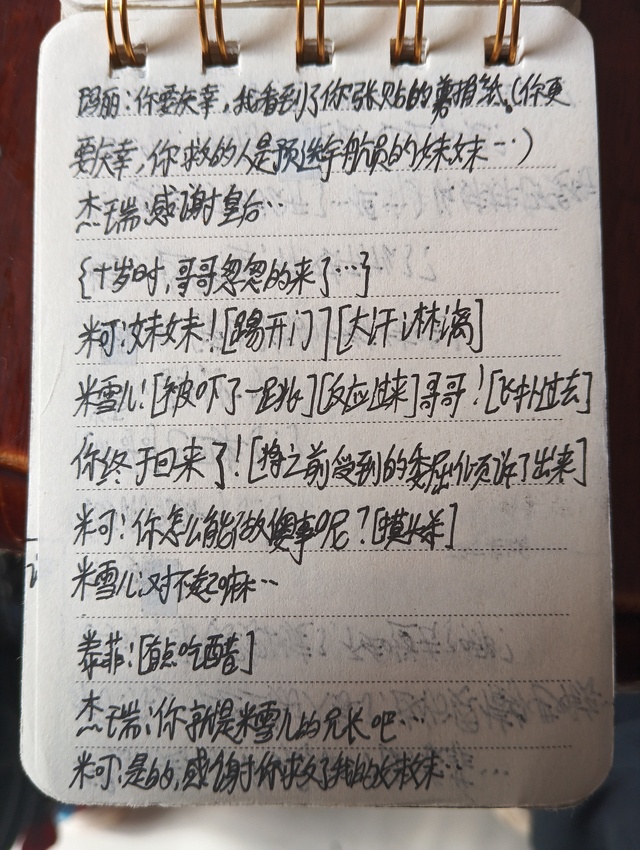 玛丽:你要庆幸,我看到了你张贴的剪报纸。(你更
要庆幸,你救的人是预选宇航员的妹妹…)
杰瑞:感谢皇后…
{十岁时,哥哥忽忽的来了…}
米可:妹妹![踢开门][大汗淋漓]
米雪儿:[被吓了一跳][反应过来]哥哥![飞扑过去]
你终于回来了![将之前受到的委屈倾诉了出来]
米可:你怎么能做傻事呢?[摸长米]
米雪儿:对不起嘛…
泰菲:[有点吃醋]
杰瑞:你就是米雪儿的兄长吧…
米可:是的,感谢你救了我的妹妹…